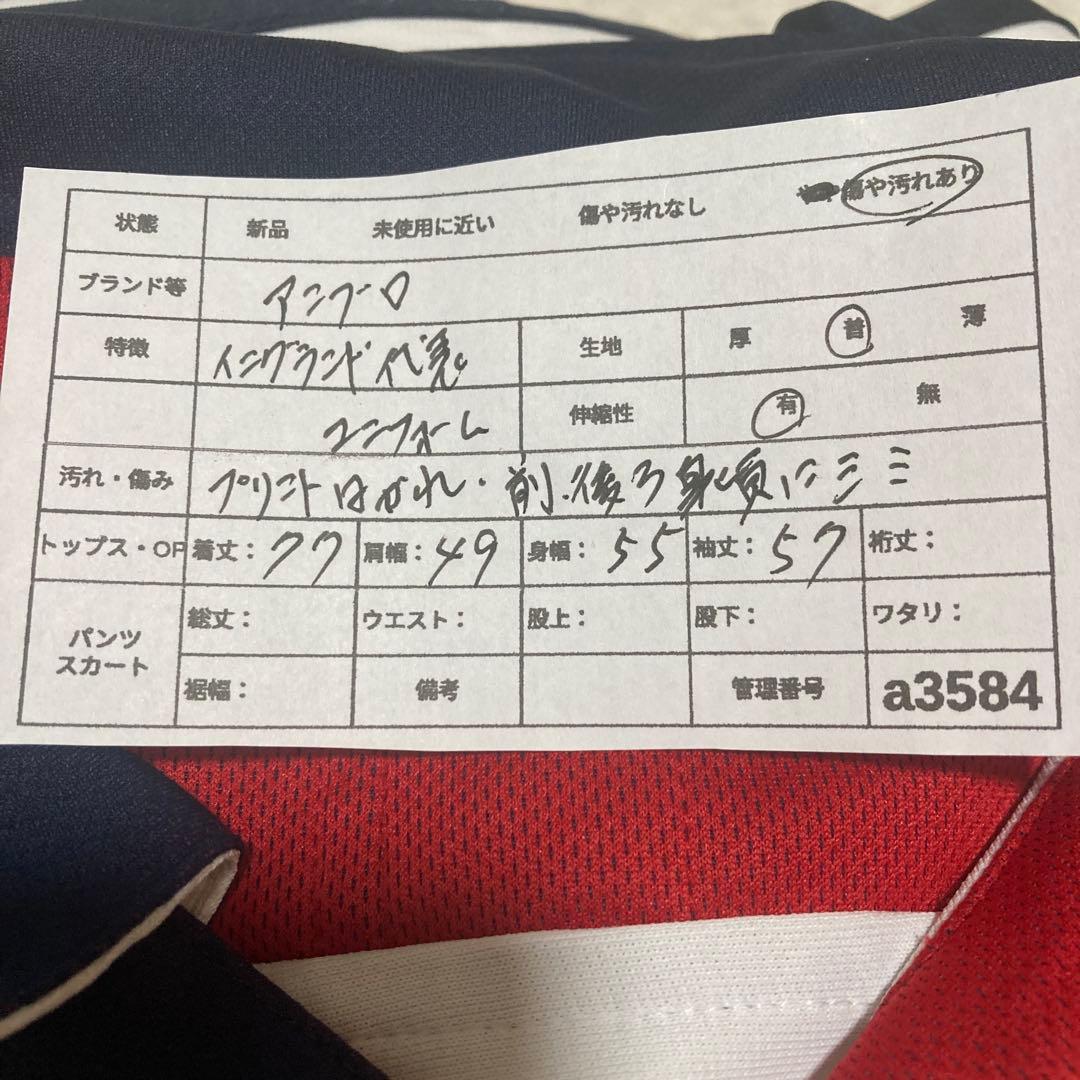 状態 新品 未使用に近い 傷や汚れなし 傷や汚れあり
ブランド等 アンブロ
特徴 イングランド代表 生地 厚 普 薄
ユニフォーム 伸縮性 有 無
汚れ・傷み プリントはがれ・前、後ろ身頃にシミ
トップス・OP 着丈：77 肩幅：49 身幅：55 袖丈：57 裄丈：
パンツ 総丈： ウエスト： 股上： 股下： ワタリ：
スカート 裾幅： 備考 管理番号 a3584